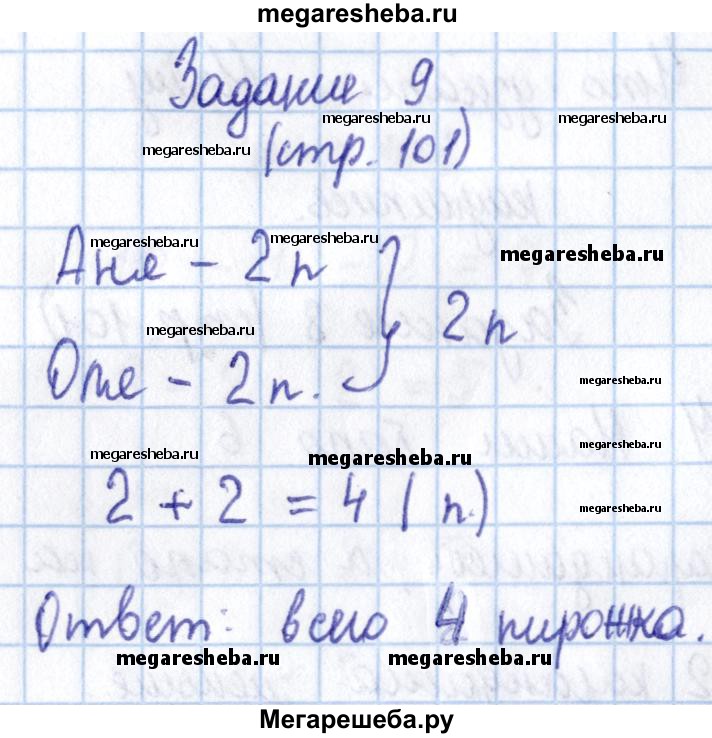 megaresheba.ru
Задание 9
megaresheba.ru megaresheba.ru
megaresheba.ru (стр. 101)
megaresheba.ru megaresheba.ru
Ане – 2 п } 2 п megaresheba.ru
megaresheba.ru
Оле – 2 п.
megaresheba.ru
megaresheba.ru
megaresheba.ru megaresheba.ru
2 + 2 = 4 ( п.)
megaresheba.ru
Ответ: всего 4 пирожка.
megaresheba.ru megaresheba.ru
Мегарешеба.ру